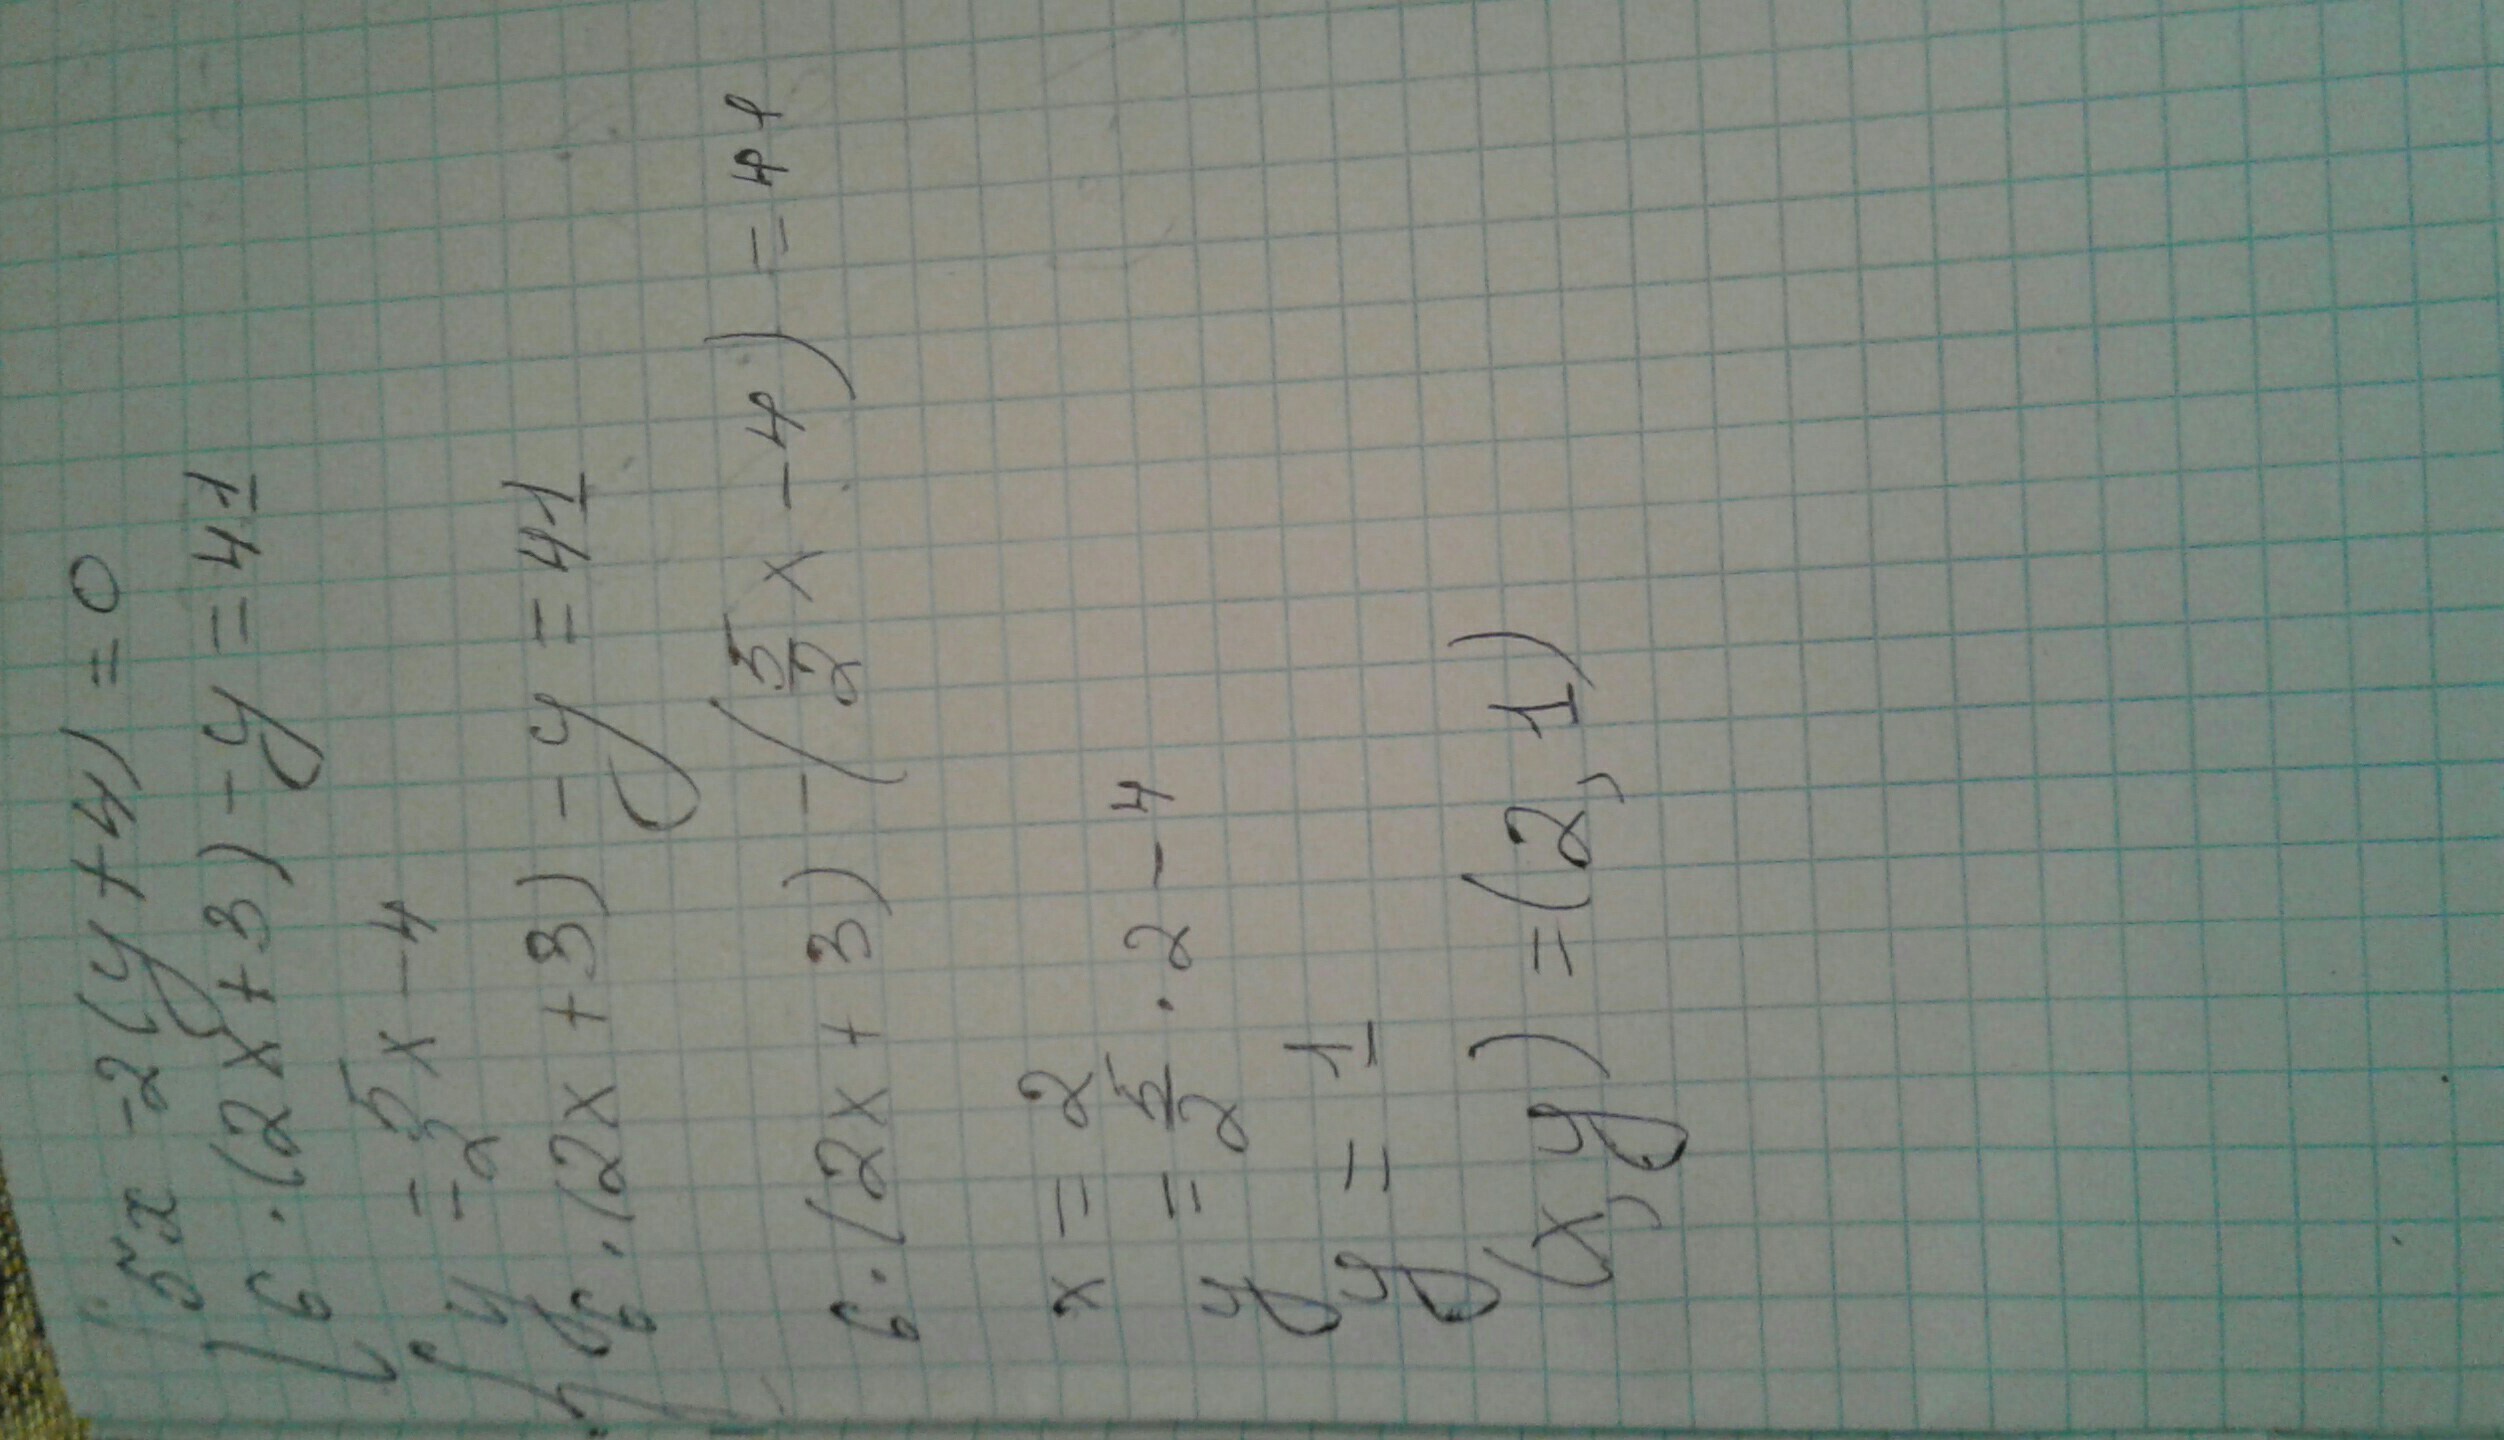 {5x -2(y+4) = 0
{6·(2x+3) - y = 41
{y = 5/2 x - 4
{6·(2x+3) - y = 41
6·(2x+3) - (5/2 x - 4) = 41
x = 2
y = 5/2 · 2 - 4
y = 1
(x,y) = (2,1)